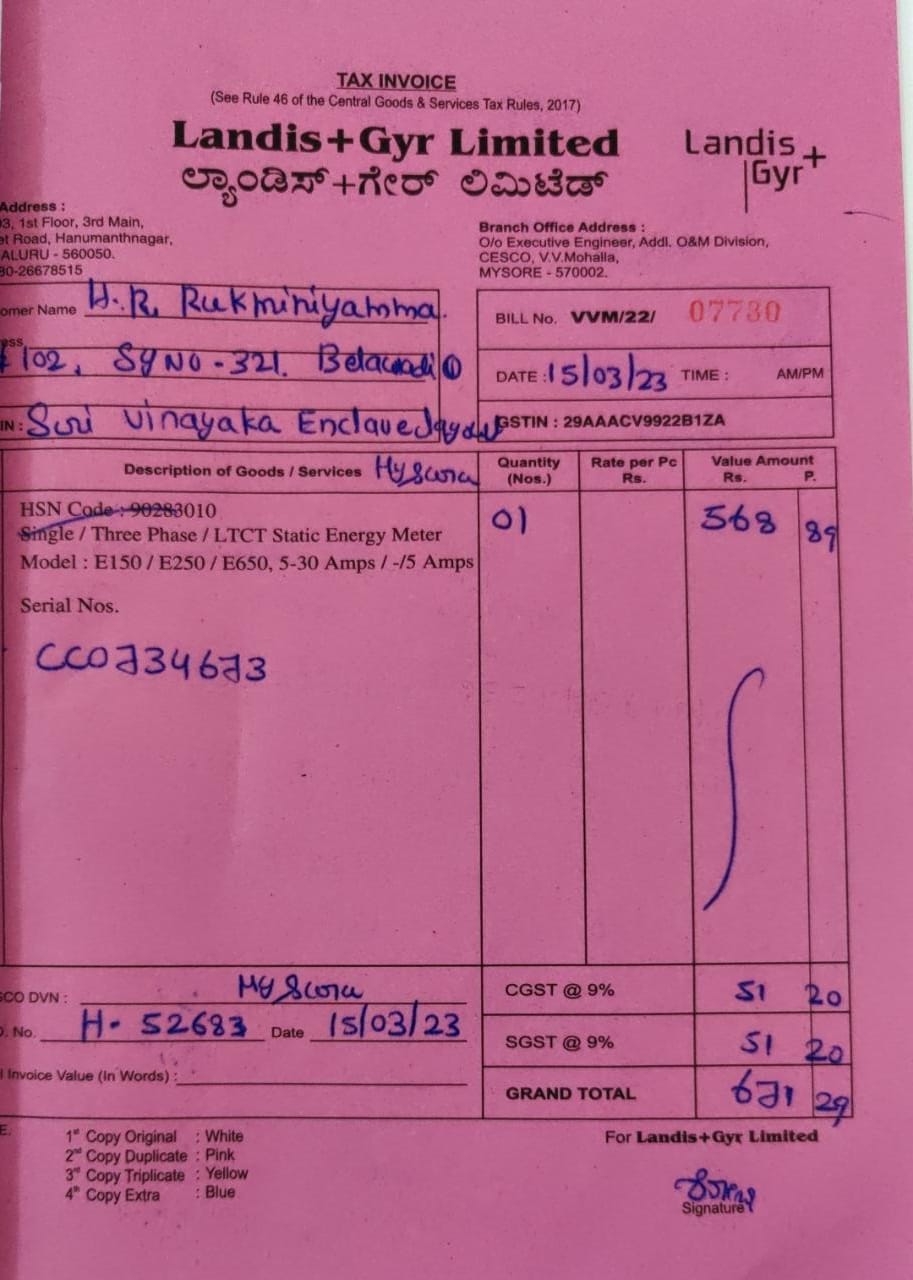 TAX INVOICE
(See Rule 46 of the Central Goods & Services Tax Rules, 2017)
Landis+Gyr Limited
ಲ್ಯಾಂಡಿಸ್+ಗೇರ್ ಲಿಮಿಟೆಡ್
Landis+
Gyr
Address :
3, 1st Floor, 3rd Main,
et Road, Hanumanthnagar,
ALURU - 560050.
80-26678515
Branch Office Address :
O/o Executive Engineer, Addl. O&M Division,
CESCO, V.V.Mohalla,
MYSORE - 570002.
omer Name H.R. Rukminiyamma.
BILL No. VVM/22/ 07730
ess
102, Sy No - 321. Belawadi
DATE : 15/03/23 TIME : AM/PM
IN : Sri Vinayaka Enclave
GSTIN : 29AAACV9922B1ZA
Description of Goods / Services Mysore
Quantity (Nos.) Rate per Pc Rs. Value Amount Rs. P.
HSN Code : 90283010
Single / Three Phase / LTCT Static Energy Meter 01 568 89
Model : E150 / E250 / E650, 5-30 Amps / -/5 Amps
Serial Nos.
CC0734673
SCO DVN : Mysore
CGST @ 9% 51 20
. No. H- 52683 Date 15/03/23
SGST @ 9% 51 20
l Invoice Value (In Words) :
GRAND TOTAL 671 29
E.
1st Copy Original : White
2nd Copy Duplicate : Pink
3rd Copy Triplicate : Yellow
4th Copy Extra : Blue
For Landis+Gyr Limited
Signature